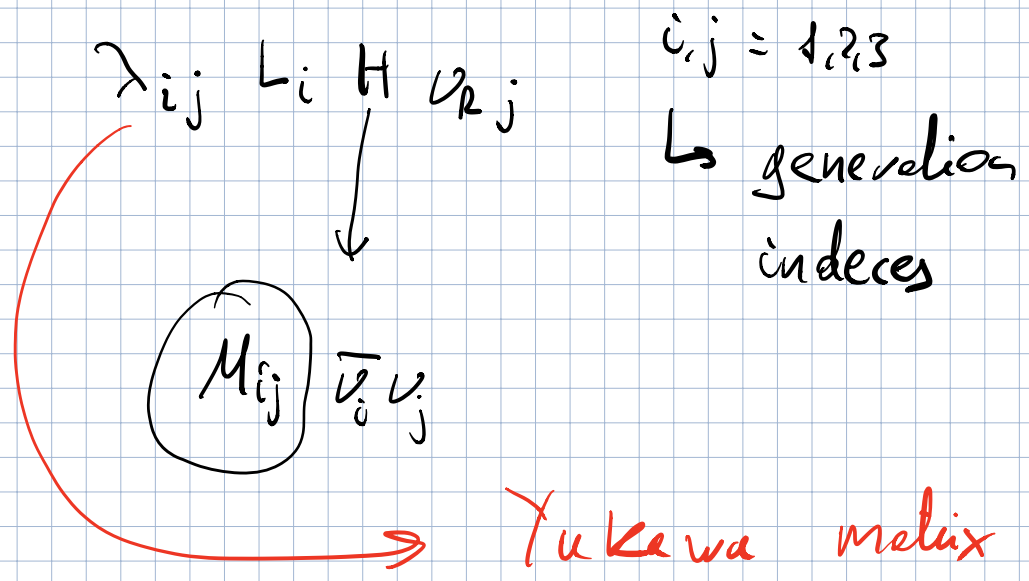 λij Li H νRj
i,j = 1,2,3
↳ generation
indeces
Mij ν̄i νj
Yukawa matrix